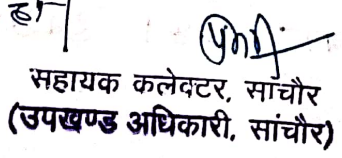 सहायक कलेक्टर, सांचौर
(उपखण्ड अधिकारी, सांचौर)